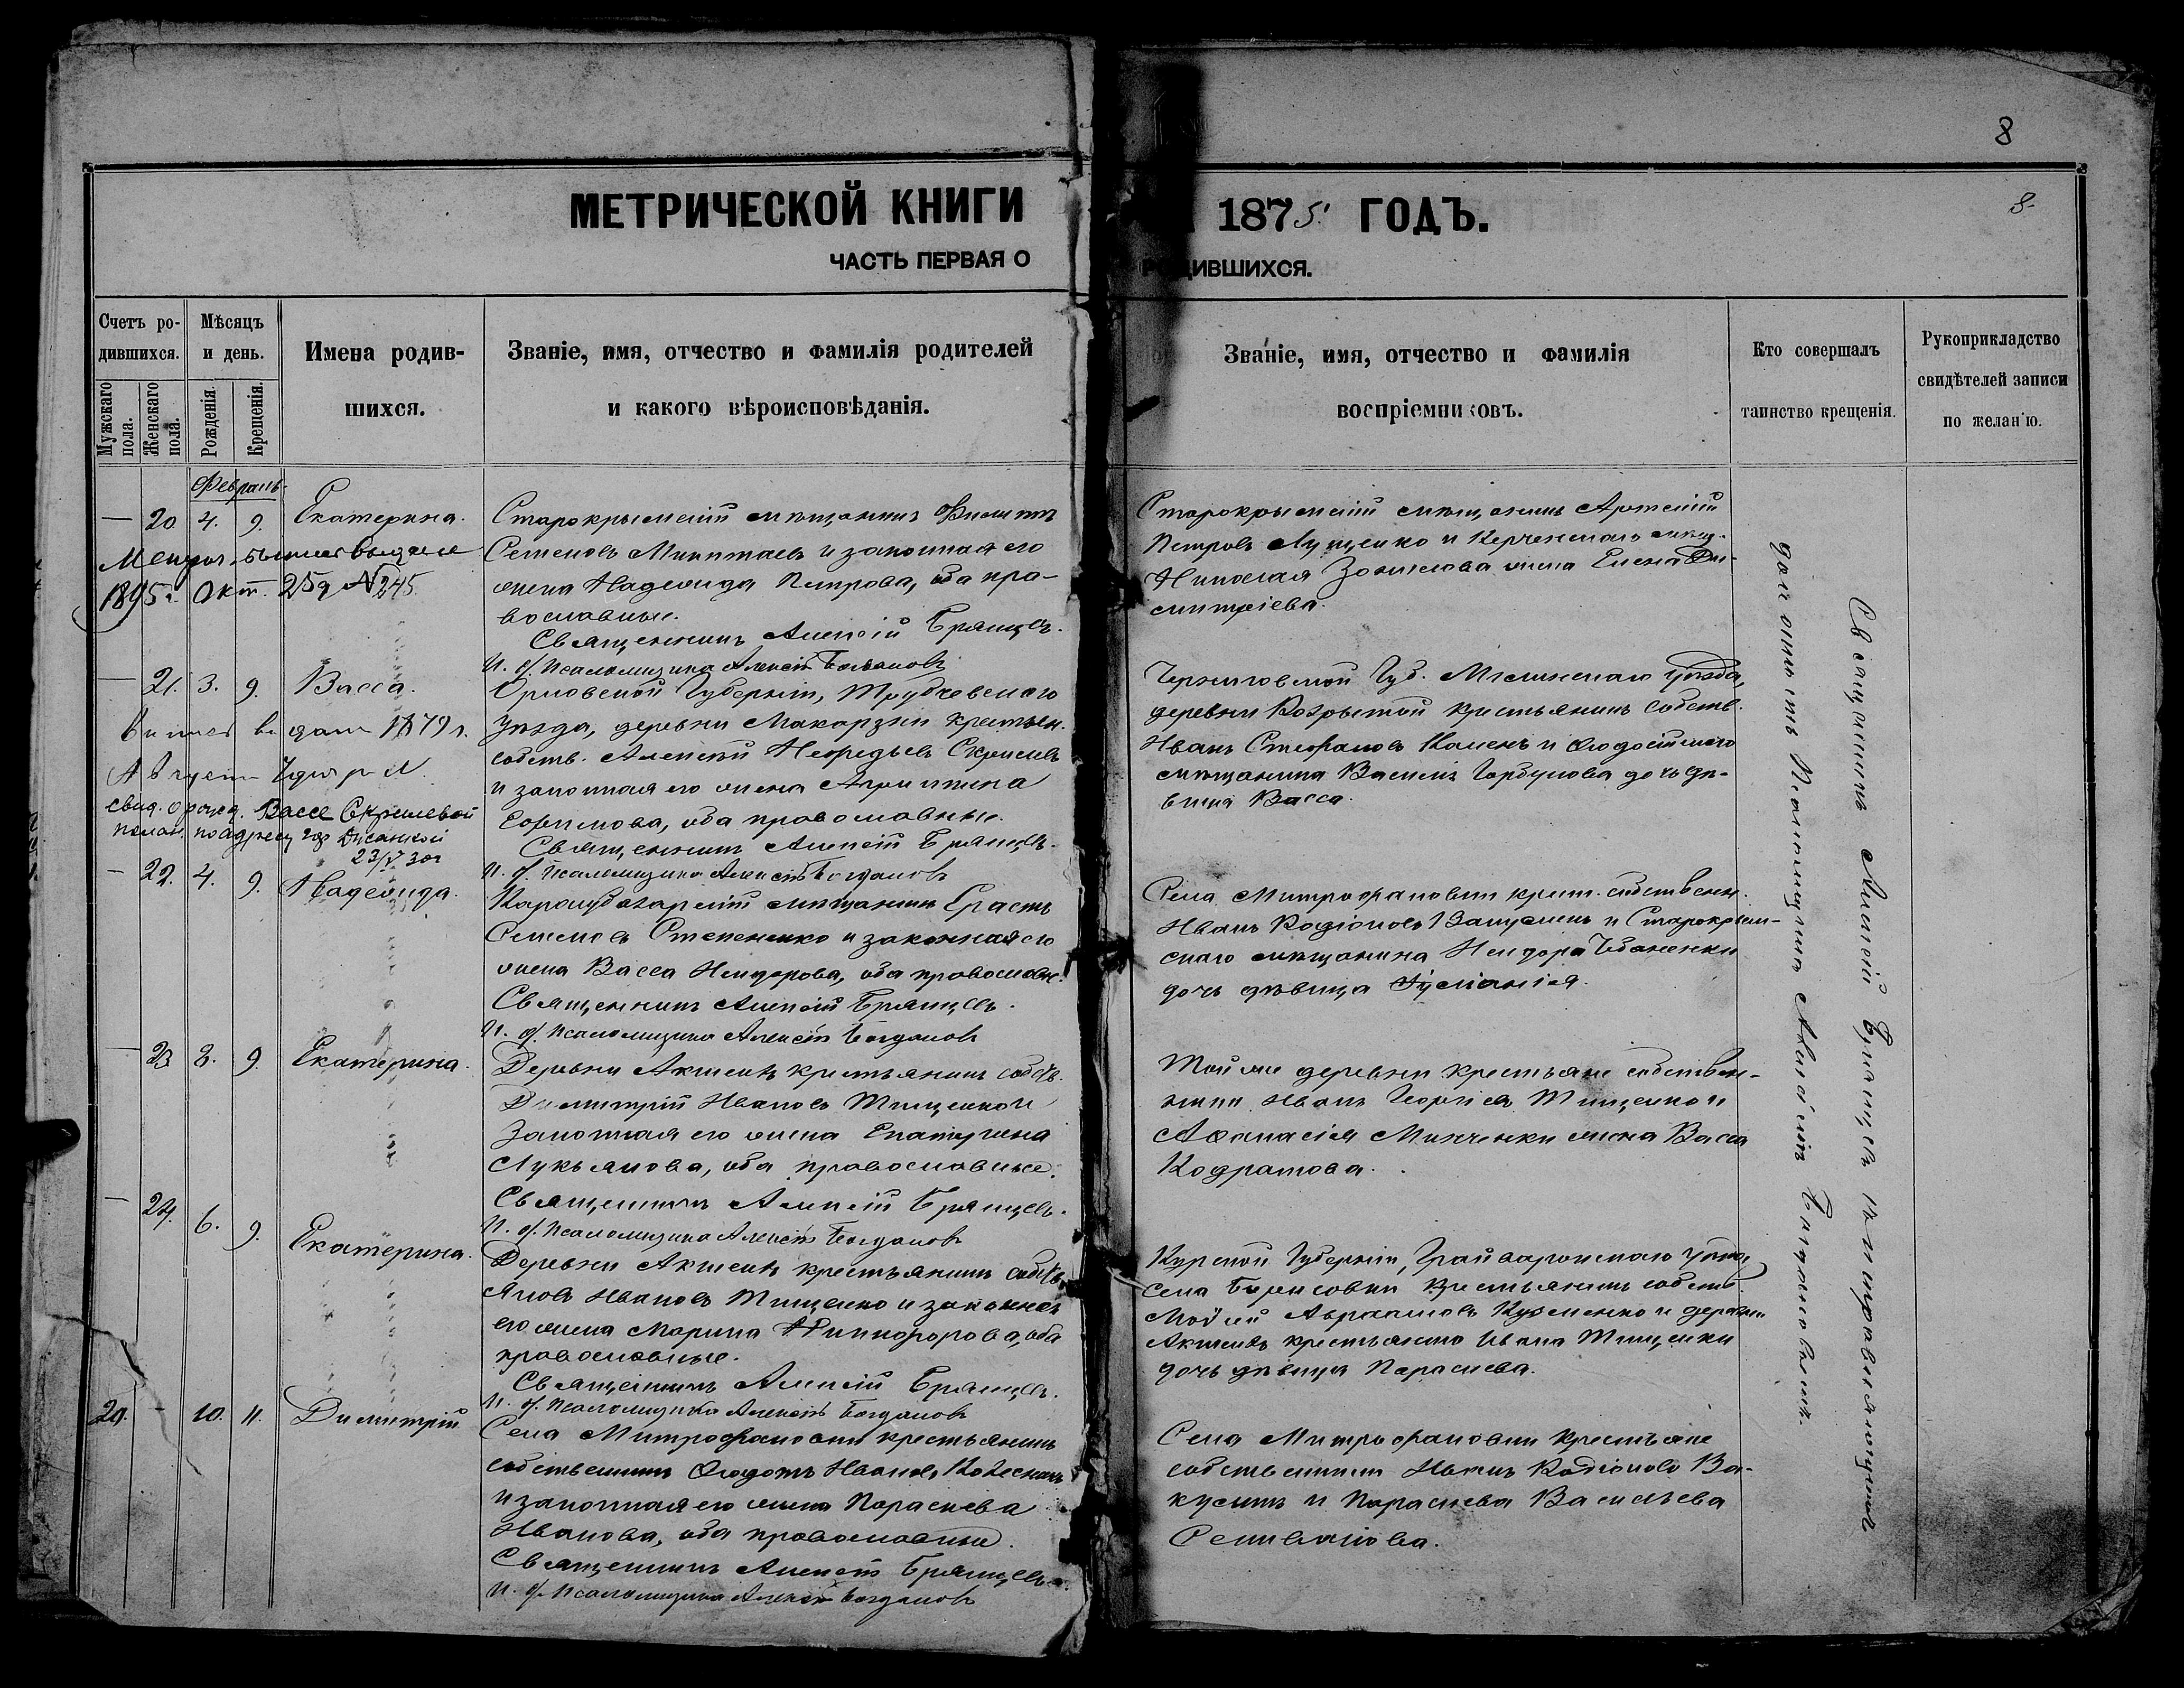 8
8.
МЕТРИЧЕСКОЙ КНИГИ
1875. ГОДЪ.
ЧАСТЬ ПЕРВАЯ О
РОДИВШИХСЯ.
Счетъ ро-
дившихся.
Мужскаго
пола.
Женскаго
пола.
Мѣсяцъ
и день.
Рожденія.
Крещенія.
Имена родив-
шихся.
Званіе, имя, отчество и фамилія родителей
и какого вѣроисповѣданія.
Званіе, имя, отчество и фамилія
воспріемниковъ.
Кто совершалъ
таинство крещенія.
Рукоприкладство
свидѣтелей записи
по желанію.
Февраль.
— 20. 4. 9. Екатерина.
1895 г. Окт. 25 д № 245.
Старокрымскій мѣщанинъ Филиппъ
Семеновъ и законная его
жена Надежда Петрова, оба пра-
вославные.
Священникъ Алексій Брянцевъ.
И. д. Псаломщика Алексѣй Богдановъ
Старокрымскій мѣщанинъ Артемій
Петровъ Луценко и Керченскаго мѣщ.
Николая жена Елена Ди-
митріева.
— 21. 3. 9. Васса.
1879 г.
Августа
свид. о рожд. Вассе Скрылевой
по адресу гор Джанкой
23/V 30 г
Орловской Губерніи, Трубчевскаго
уѣзда, деревни Макарзни крестьян.
собств. Алексѣй Нефедьевъ Скрылевъ
и законная его жена Акилина
Ефимова, оба православные.
Священникъ Алексій Брянцевъ.
И. д. Псаломщика Алексѣй Богдановъ
Черниговской Губ. Мглинскаго уѣзда,
деревни крестьянинъ собств.
Иванъ Стефановъ и Ѳеодосійскаго
мѣщанина Василія Горбунова дочь дѣ-
вица Васса.
— 22. 4. 9. Надежда.
Карасубазарскій мѣщанинъ Ерастъ
Семеновъ Степаненко и законная его
жена Васса Исидорова, оба православн.
Священникъ Алексій Брянцевъ.
И. д. Псаломщика Алексѣй Богдановъ
Села Митрофановки крест. собственн.
Иванъ Родіоновъ и Старокрым-
скаго мѣщанина Исидора Чебаненки
дочь дѣвица Іуліанія.
— 23. 8. 9. Екатерина.
Деревни Акшеихъ крестьянинъ собств.
Димитрій Ивановъ Тищенко и
законная его жена Екатерина
Лукьянова, оба православные.
Священникъ Алексій Брянцевъ.
И. д. Псаломщика Алексѣй Богдановъ
Той же деревни крестьяне собствен-
ники Иванъ Георгіевъ Тищенко и
Аѳанасія Минченки жена Васса
Кодратова.
— 24. 6. 9. Екатерина.
Деревни Акшеихъ крестьянинъ собств.
Яковъ Ивановъ Тищенко и законная
его жена Марина Никифорова, оба
православные.
Священникъ Алексій Брянцевъ.
И. д. Псаломщика Алексѣй Богдановъ
Курской Губерніи, Грайворонскаго уѣзда,
села Борисовки крестьянинъ собств.
Моѵсей Авраамовъ Кузменко и деревни
Акшеихъ крестьянина Ивана Тищенки
дочь дѣвица Параскева.
20. — 10. 11. Димитрій
Села Митрофановки крестьянинъ
собственникъ Ѳеодотъ Ивановъ
и законная его жена Параскева
Иванова, оба православные.
Священникъ Алексій Брянцевъ.
И. д. Псаломщика Алексѣй Богдановъ
Села Митрофановки крестьяне
собственники Иванъ Родіоновъ Ва-
кусинъ и Параскева Васильева
Селиванова.
Священникъ Алексій Брянцевъ съ и. исправляющимъ
должность Псаломщика Алексѣемъ Богдановымъ.